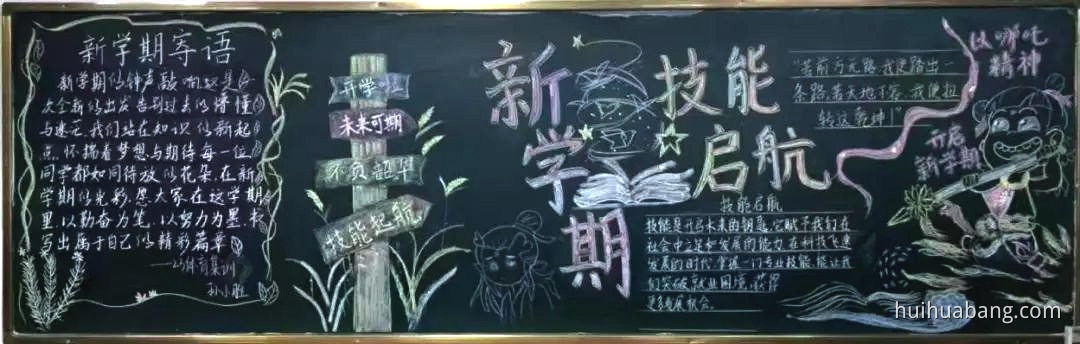 新学期寄语
新学期的钟声敲响,这是一
次全新的出发,告别过去的懵懂
与迷茫,我们站在知识的新起
点,怀揣着梦想与期待,每一位
同学都如同待放的花朵,在新
学期的光彩,愿大家在这学期
里,以勤奋为笔,以努力为墨,书
写出属于自己的精彩篇章
孙小胜
开学啦
未来可期
不负韶华
技能起航
新学期
技能
启航
技能启航
技能是开启未来的钥匙,它赋予我们在
社会中立足和发展的能力,在科技飞速
发展的时代,掌握一门专业技能,能让我
们突破就业困境,获得
更多发展机会。
"若前方无路,我便踏出一
条路,若天地不容,我便扭
转这乾坤!"
以哪吒
精神
开启
新学期
huihuabang.com